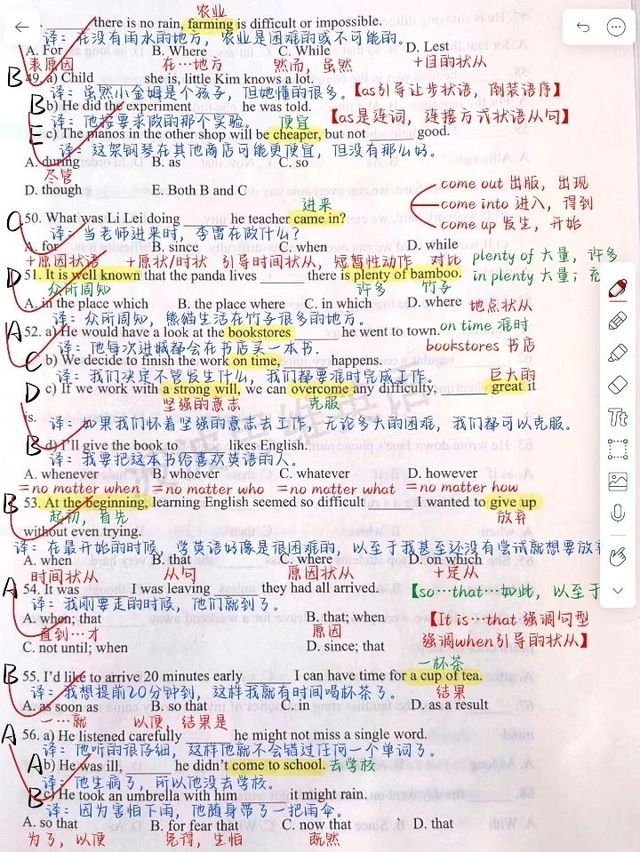 农业
_____ there is no rain, farming is difficult or impossible.
译：在没有雨水的地方，农业是困难的或不可能的。
A. For B. Where C. While D. Lest
表原因 在…地方 然而，虽然 +目的状从
B 49. a) Child _____ she is, little Kim knows a lot.
译：虽然小金姆是个孩子，但她懂的很多。【as引导让步状语，倒装语序】
B b) He did the experiment _____ he was told.
译：他按要求做的那个实验。 便宜 【as是连词，连接方式状语从句】
E c) The pianos in the other shop will be cheaper, but not _____ good.
译：这架钢琴在其他商店可能更便宜，但没有那么好。
A. during B. as C. so
尽管
D. though E. Both B and C
come out 出版，出现
进来 come into 进入，得到
C 50. What was Li Lei doing _____ he teacher came in? come up 发生，开始
译：当老师进来时，李雷在做什么？
A. for B. since C. when D. while
+原因状语 +原状/时状 引导时间状从，短暂性动作 对比 plenty of 大量，许多
D 51. It is well known that the panda lives _____ there is plenty of bamboo. in plenty 大量；充
众所周知 许多 竹子
A. in the place which B. the place where C. in which D. where 地点状从
译：众所周知，熊猫生活在竹子很多的地方。
A 52. a) He would have a look at the bookstores _____ he went to town. on time 准时
译：他每次进城都会在书店买一本书. bookstores 书店
C b) We decide to finish the work on time, _____ happens.
译：我们决定不管发生什么，我们都要准时完成工作。 巨大的
D c) If we work with a strong will, we can overcome any difficulty, _____ great it
坚强的意志 克服
is.
译：如果我们怀着坚强的意志去工作，无论多大的困难，我们都可以克服。
B d) I'll give the book to _____ likes English.
译：我要把这本书给喜欢英语的人。
A. whenever B. whoever C. whatever D. however
=no matter when =no matter who =no matter what =no matter how
B 53. At the beginning, learning English seemed so difficult _____ I wanted to give up
起初，首先 放弃
without even trying.
译：在最开始的时候，学英语好像是很困难的，以至于我甚至还没有尝试就想要放弃
A. when B. that C. where D. on which
时间状从 从句 原因状从 +定从
A 54. It was _____ I was leaving _____ they had all arrived. 【so…that…如此，以至于
译：我刚要走的时候，他们就到了。
A. when; that B. that; when 【It is…that 强调句型
直到…才 原因 强调when引导的状从】
C. not until; when D. since; that
一杯茶
B 55. I'd like to arrive 20 minutes early _____ I can have time for a cup of tea.
译：我想提前20分钟到，这样我就有时间喝杯茶了。 结果
A. as soon as B. so that C. in D. as a result
一…就 以便，结果是
A 56. a) He listened carefully _____ he might not miss a single word.
译：他听的很仔细，这样他就不会错过任何一个单词了。
A b) He was ill, _____ he didn't come to school. 去学校
译：他生病了，所以他没去学校。
B c) He took an umbrella with him _____ it might rain.
译：因为害怕下雨，他随身带了一把雨伞。
A. so that B. for fear that C. now that D. that
为了，以便 免得，生怕 既然